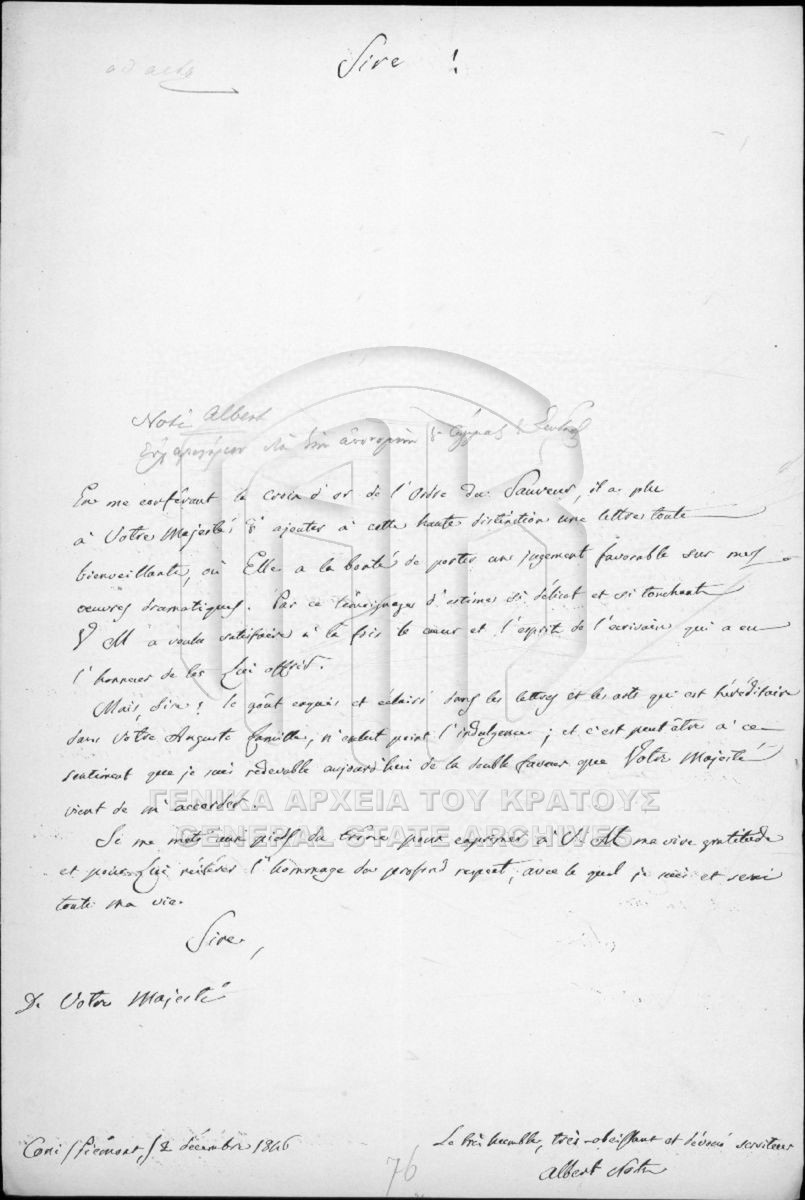 ad acta
Sire !
Note Albert
En me conférant la croix d'or de l'Ordre du Sauveur, il a plu
à Votre Majesté d'ajouter à cette haute distinction une lettre toute
bienveillante, où Elle a la bonté de porter un jugement favorable sur mes
oeuvres dramatiques. Par ce témoignage d'estime si délicat et si touchant
V M a voulu satisfaire à la fois le coeur et l'esprit de l'écrivain qui a eu
l'honneur de les Lui offrir.
Mais, Sire ! le goût exquis et éclairé dans les lettres et les arts qui est héréditaire
dans Votre Auguste famille, n'exclut point l'indulgence ; et c'est peut être à ce
sentiment que je suis redevable aujourd'hui de la double faveur que Votre Majesté
vient de m'accorder.
ΓΕΝΙΚΑ ΑΡΧΕΙΑ ΤΟΥ ΚΡΑΤΟΥΣ
GENERAL STATE ARCHIVES
Je me mets aux pieds du trône pour exprimer à V. M ma vive gratitude
et pour Lui réitérer l'hommage du profond respect, avec le quel je suis et serai
toute ma vie.
Sire,
De Votre Majesté
Coni (Piémont,) 2 décembre 1846
Le très humble, très-obéissant et dévoué serviteur
Albert Nota
76